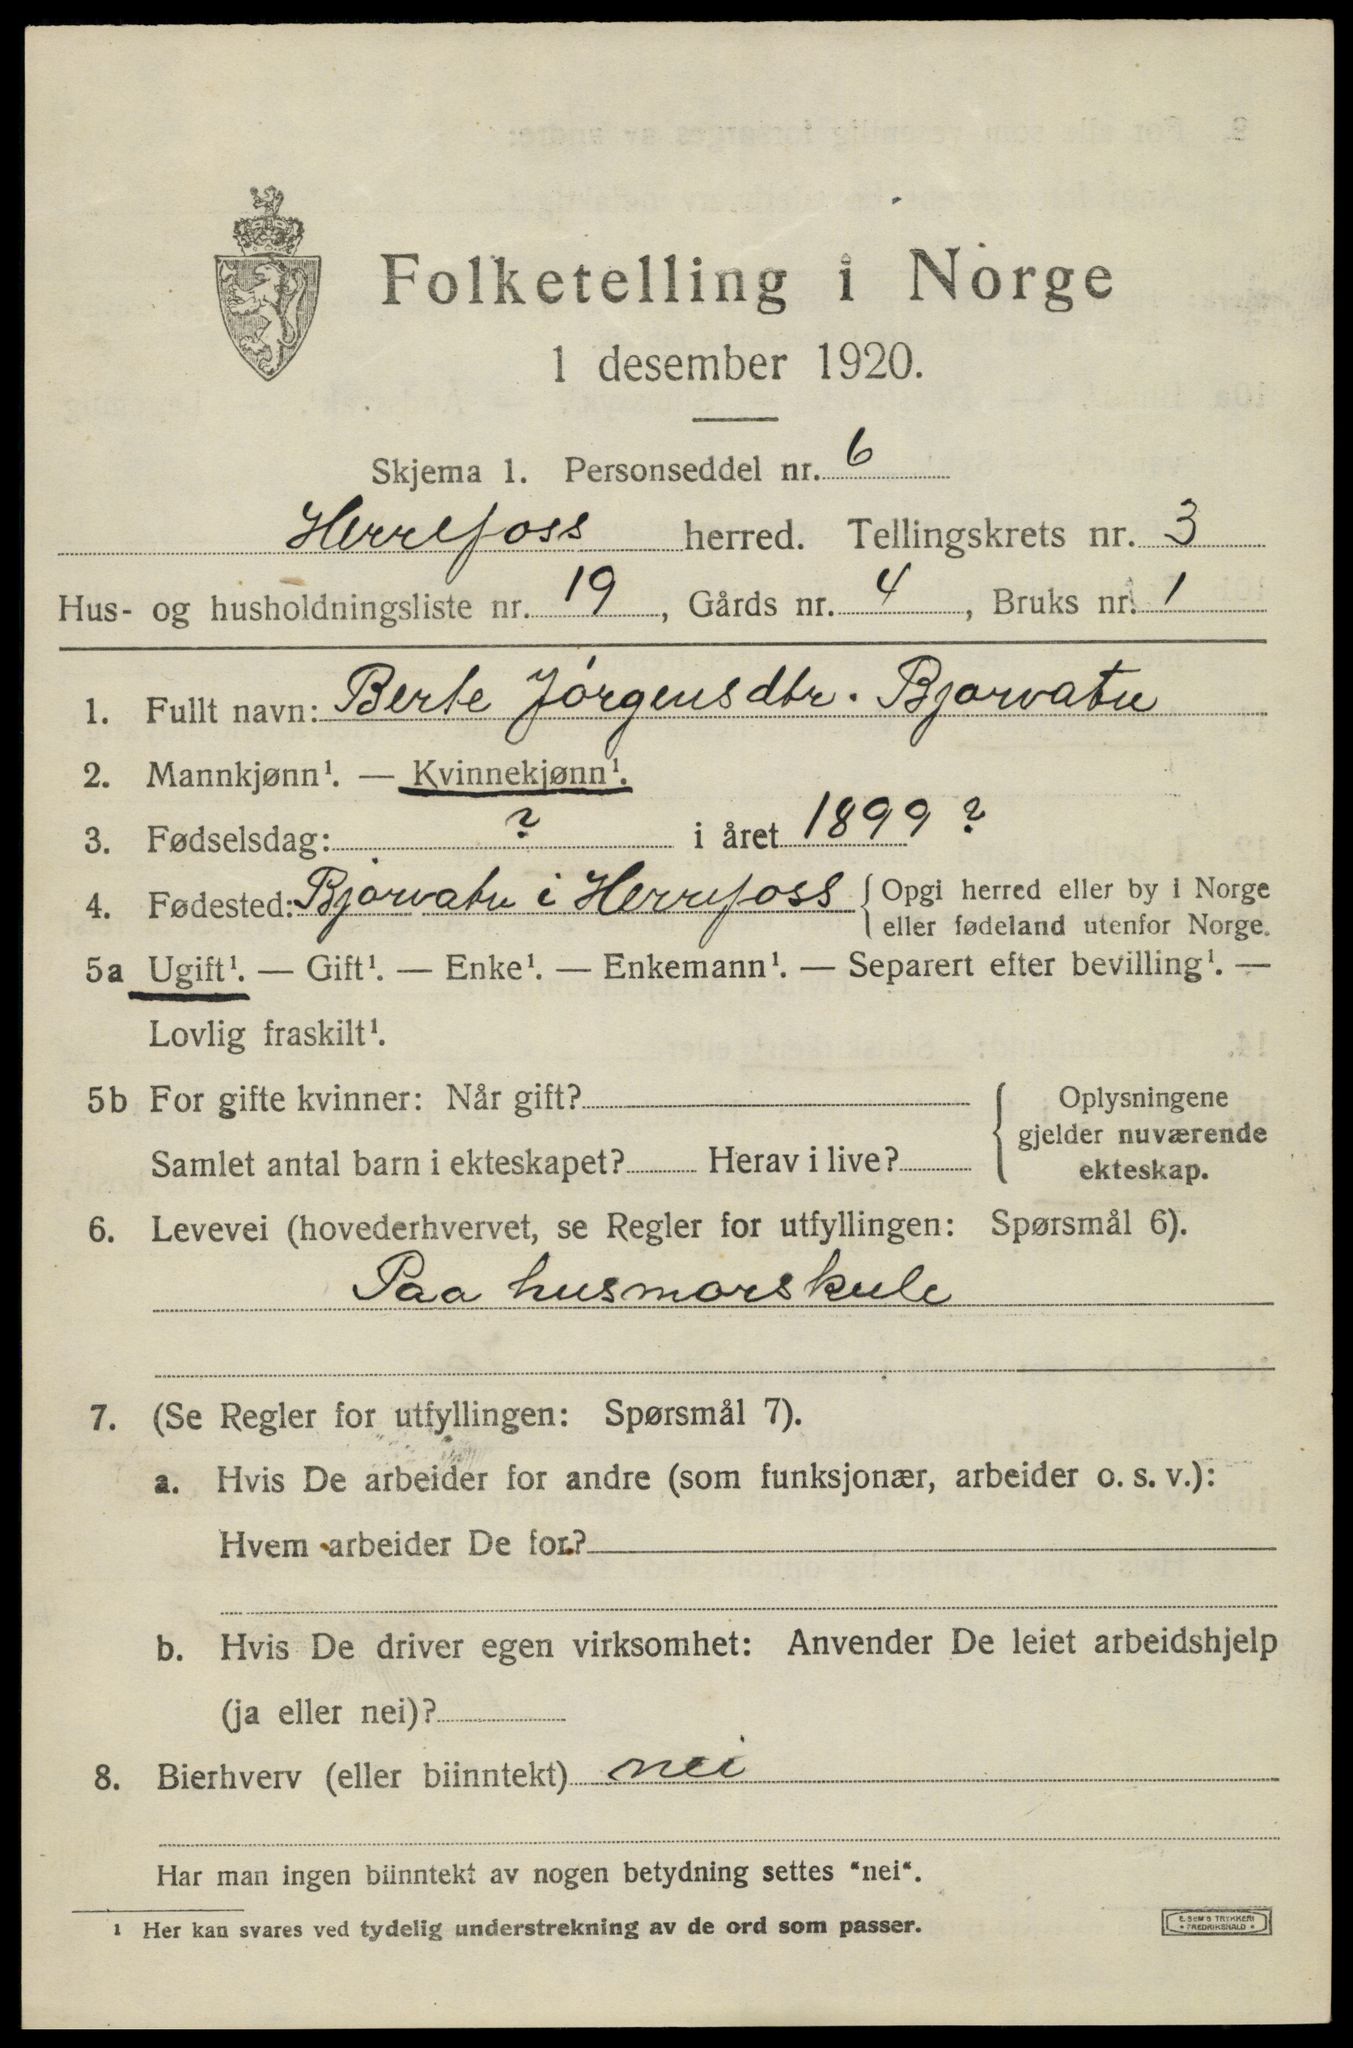 Folketelling i Norge
1 desember 1920.
Skjema 1. Personseddel nr. 6
Herrefoss herred. Tellingskrets nr. 3
Hus- og husholdningsliste nr. 19, Gårds nr. 4, Bruks nr. 1
1. Fullt navn: Berte Jörgensdtr. Bjorvatn
2. Mannkjønn¹. — Kvinnekjønn¹.
3. Fødselsdag: ? i året 1899 ?
4. Fødested: Bjorvatn i Herrefoss { Opgi herred eller by i Norge
eller fødeland utenfor Norge.
5a Ugift¹. — Gift¹. — Enke¹. — Enkemann¹. — Separert efter bevilling¹. —
Lovlig fraskilt¹.
5b For gifte kvinner: Når gift? { Oplysningene
gjelder nuværende
Samlet antal barn i ekteskapet? Herav i live?
ekteskap.
6. Levevei (hovederhvervet, se Regler for utfyllingen: Spørsmål 6).
Paa husmorskule
7. (Se Regler for utfyllingen: Spørsmål 7).
a. Hvis De arbeider for andre (som funksjonær, arbeider o. s. v.):
Hvem arbeider De for?
b. Hvis De driver egen virksomhet: Anvender De leiet arbeidshjelp
(ja eller nei)?
8. Bierhverv (eller biinntekt) nei
Har man ingen biinntekt av nogen betydning settes "nei".
¹ Her kan svares ved tydelig understrekning av de ord som passer.
E. SEM'S TRYKKERI
• FREDRIKSHALD •